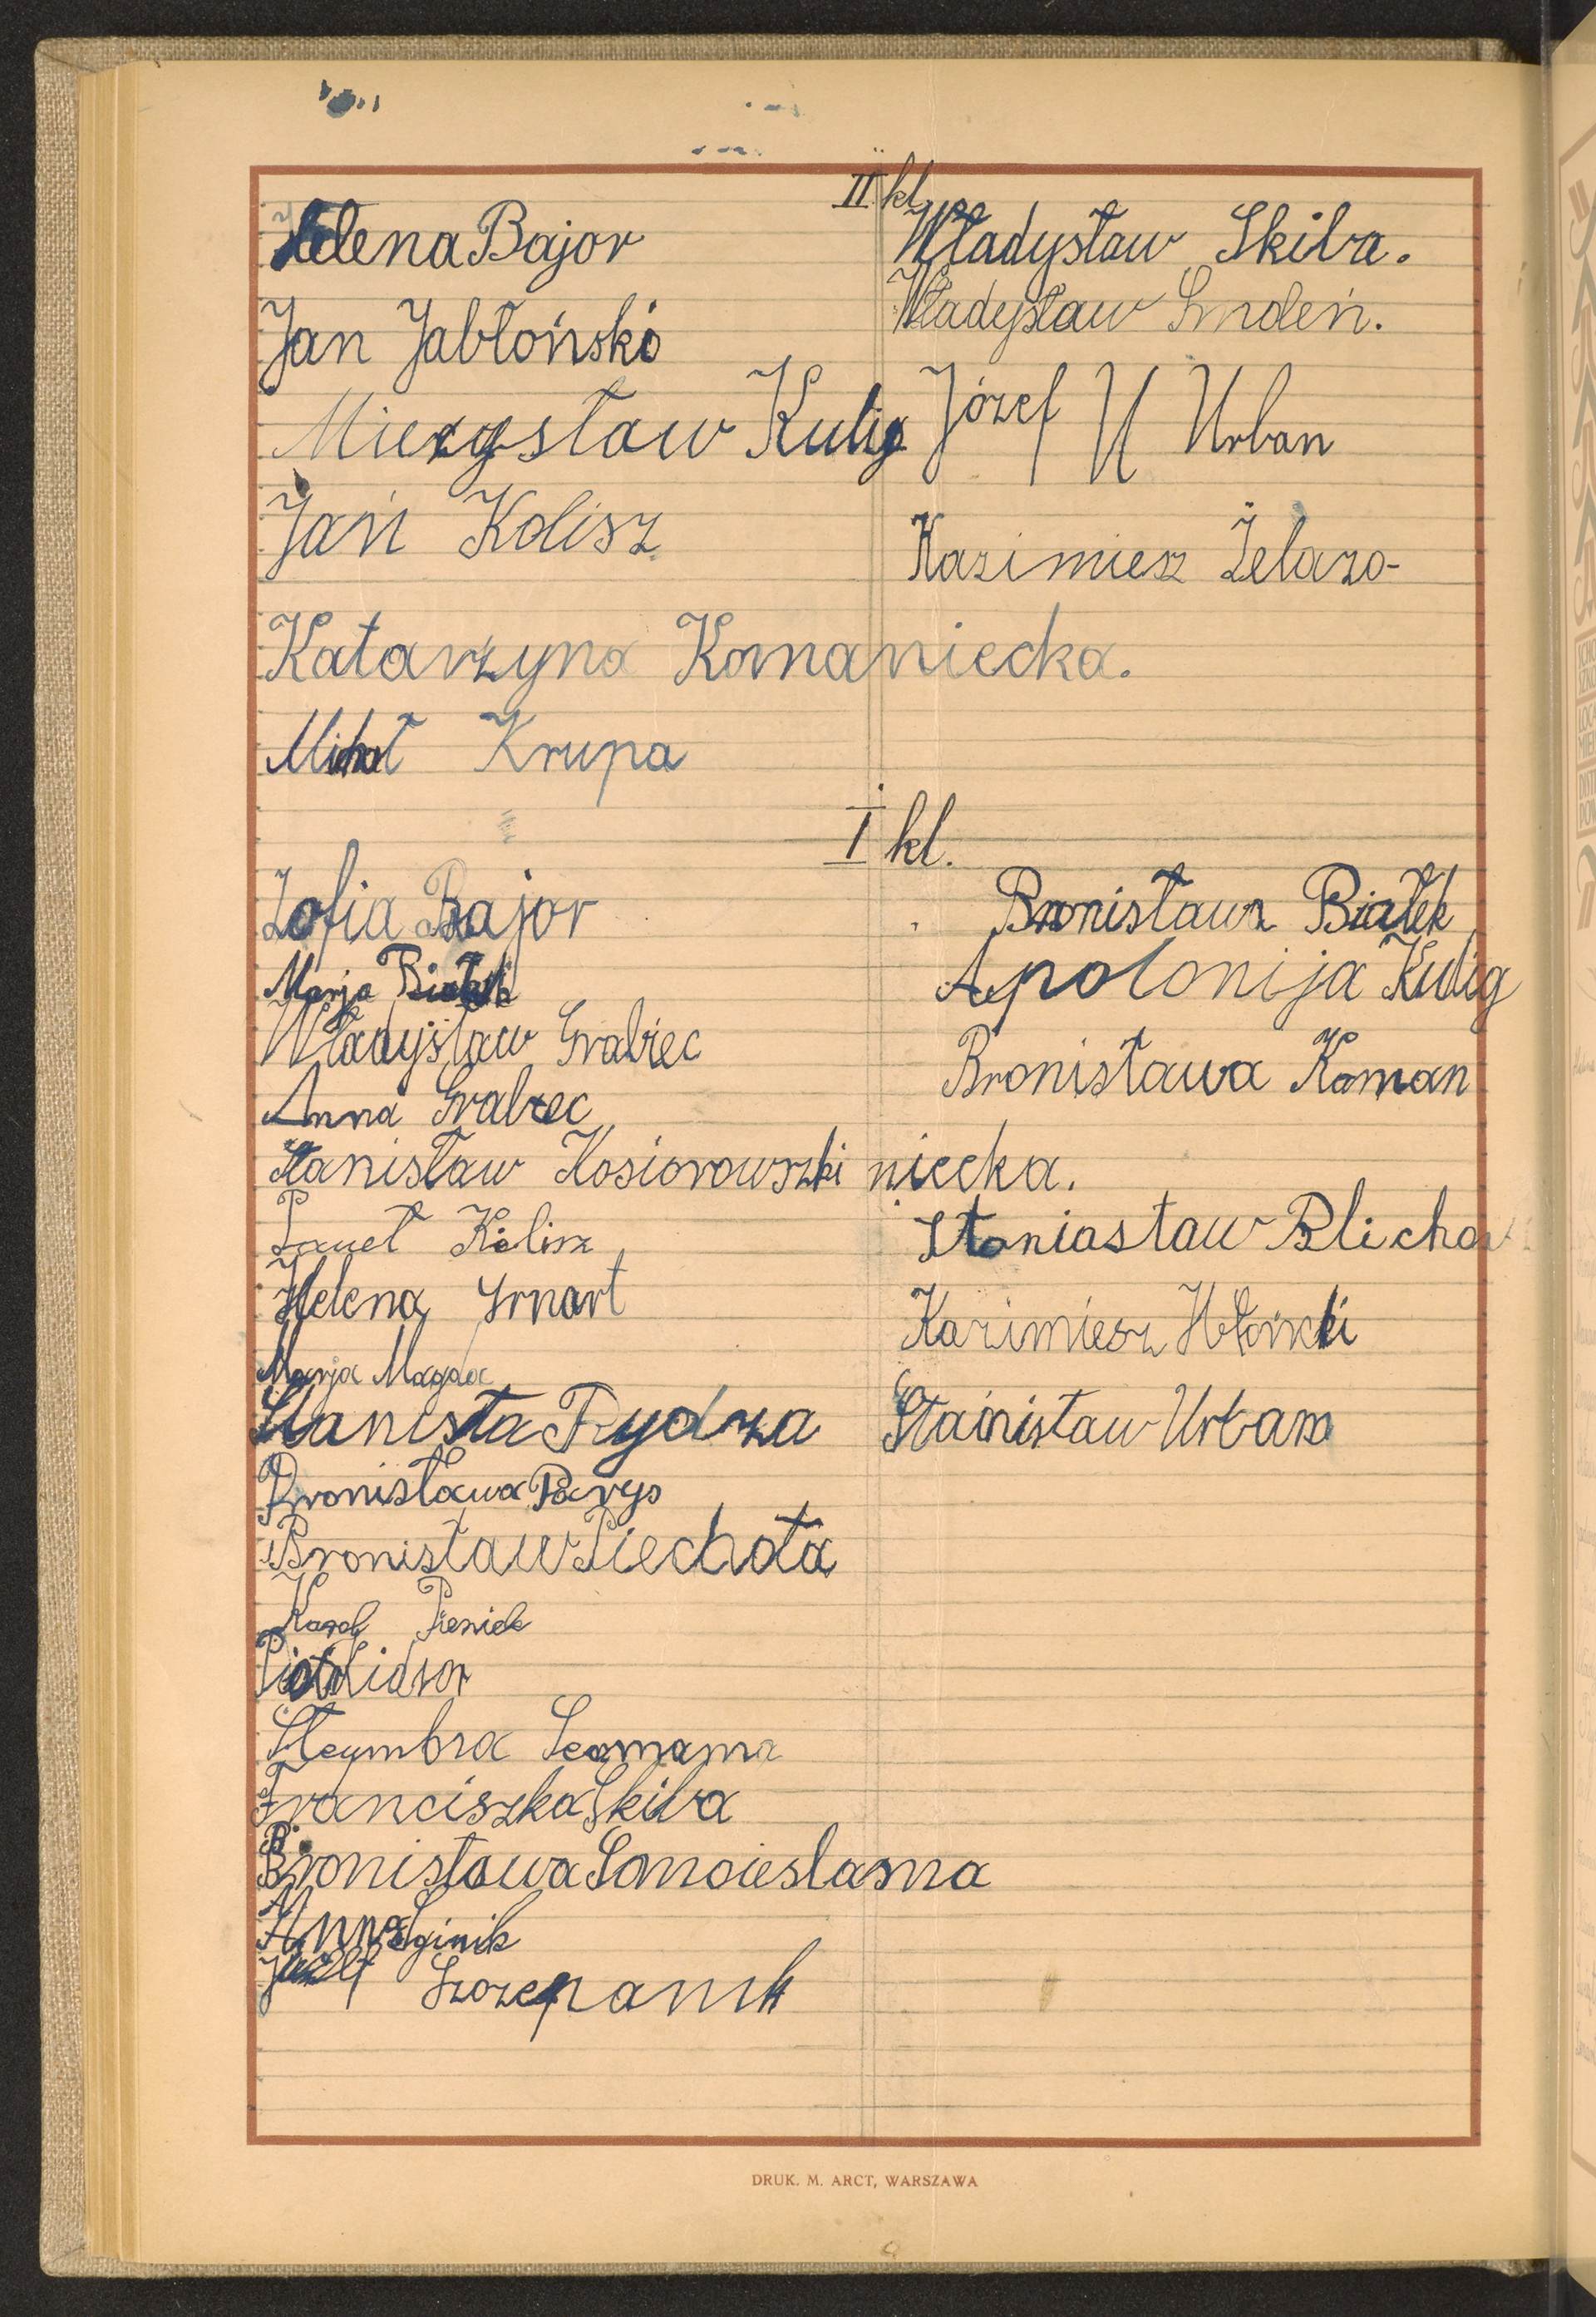 II kl.
Helena Bajor
Jan Jabłoński
Mieczysław Kulig
Jan Kolisz
Katarzyna Komaniecka.
Michał Krupa
Władysław Skiba.
Władysław Smoleń.
Józef U Urban
Kazimiesz Żelazo-
I kl.
Zofia Bajor
Marja Białek
Władysław Grabiec
Anna Grabiec
Stanisław Kosiorowszki
Paweł Kolisz
Helena
Marja Magda
Stanisła Frydza
Bronisława Parys
Bronisław Piechota
Karol
Piotr
Franciszka Skiba
Bronisława
Anna
Józef Szczepanik
Bronisława Białek
Apolonija Kulig
Bronisława Koman
niecka.
Staniastaw Blichar
Kazimiesz
Stanisław Urban
DRUK. M. ARCT, WARSZAWA